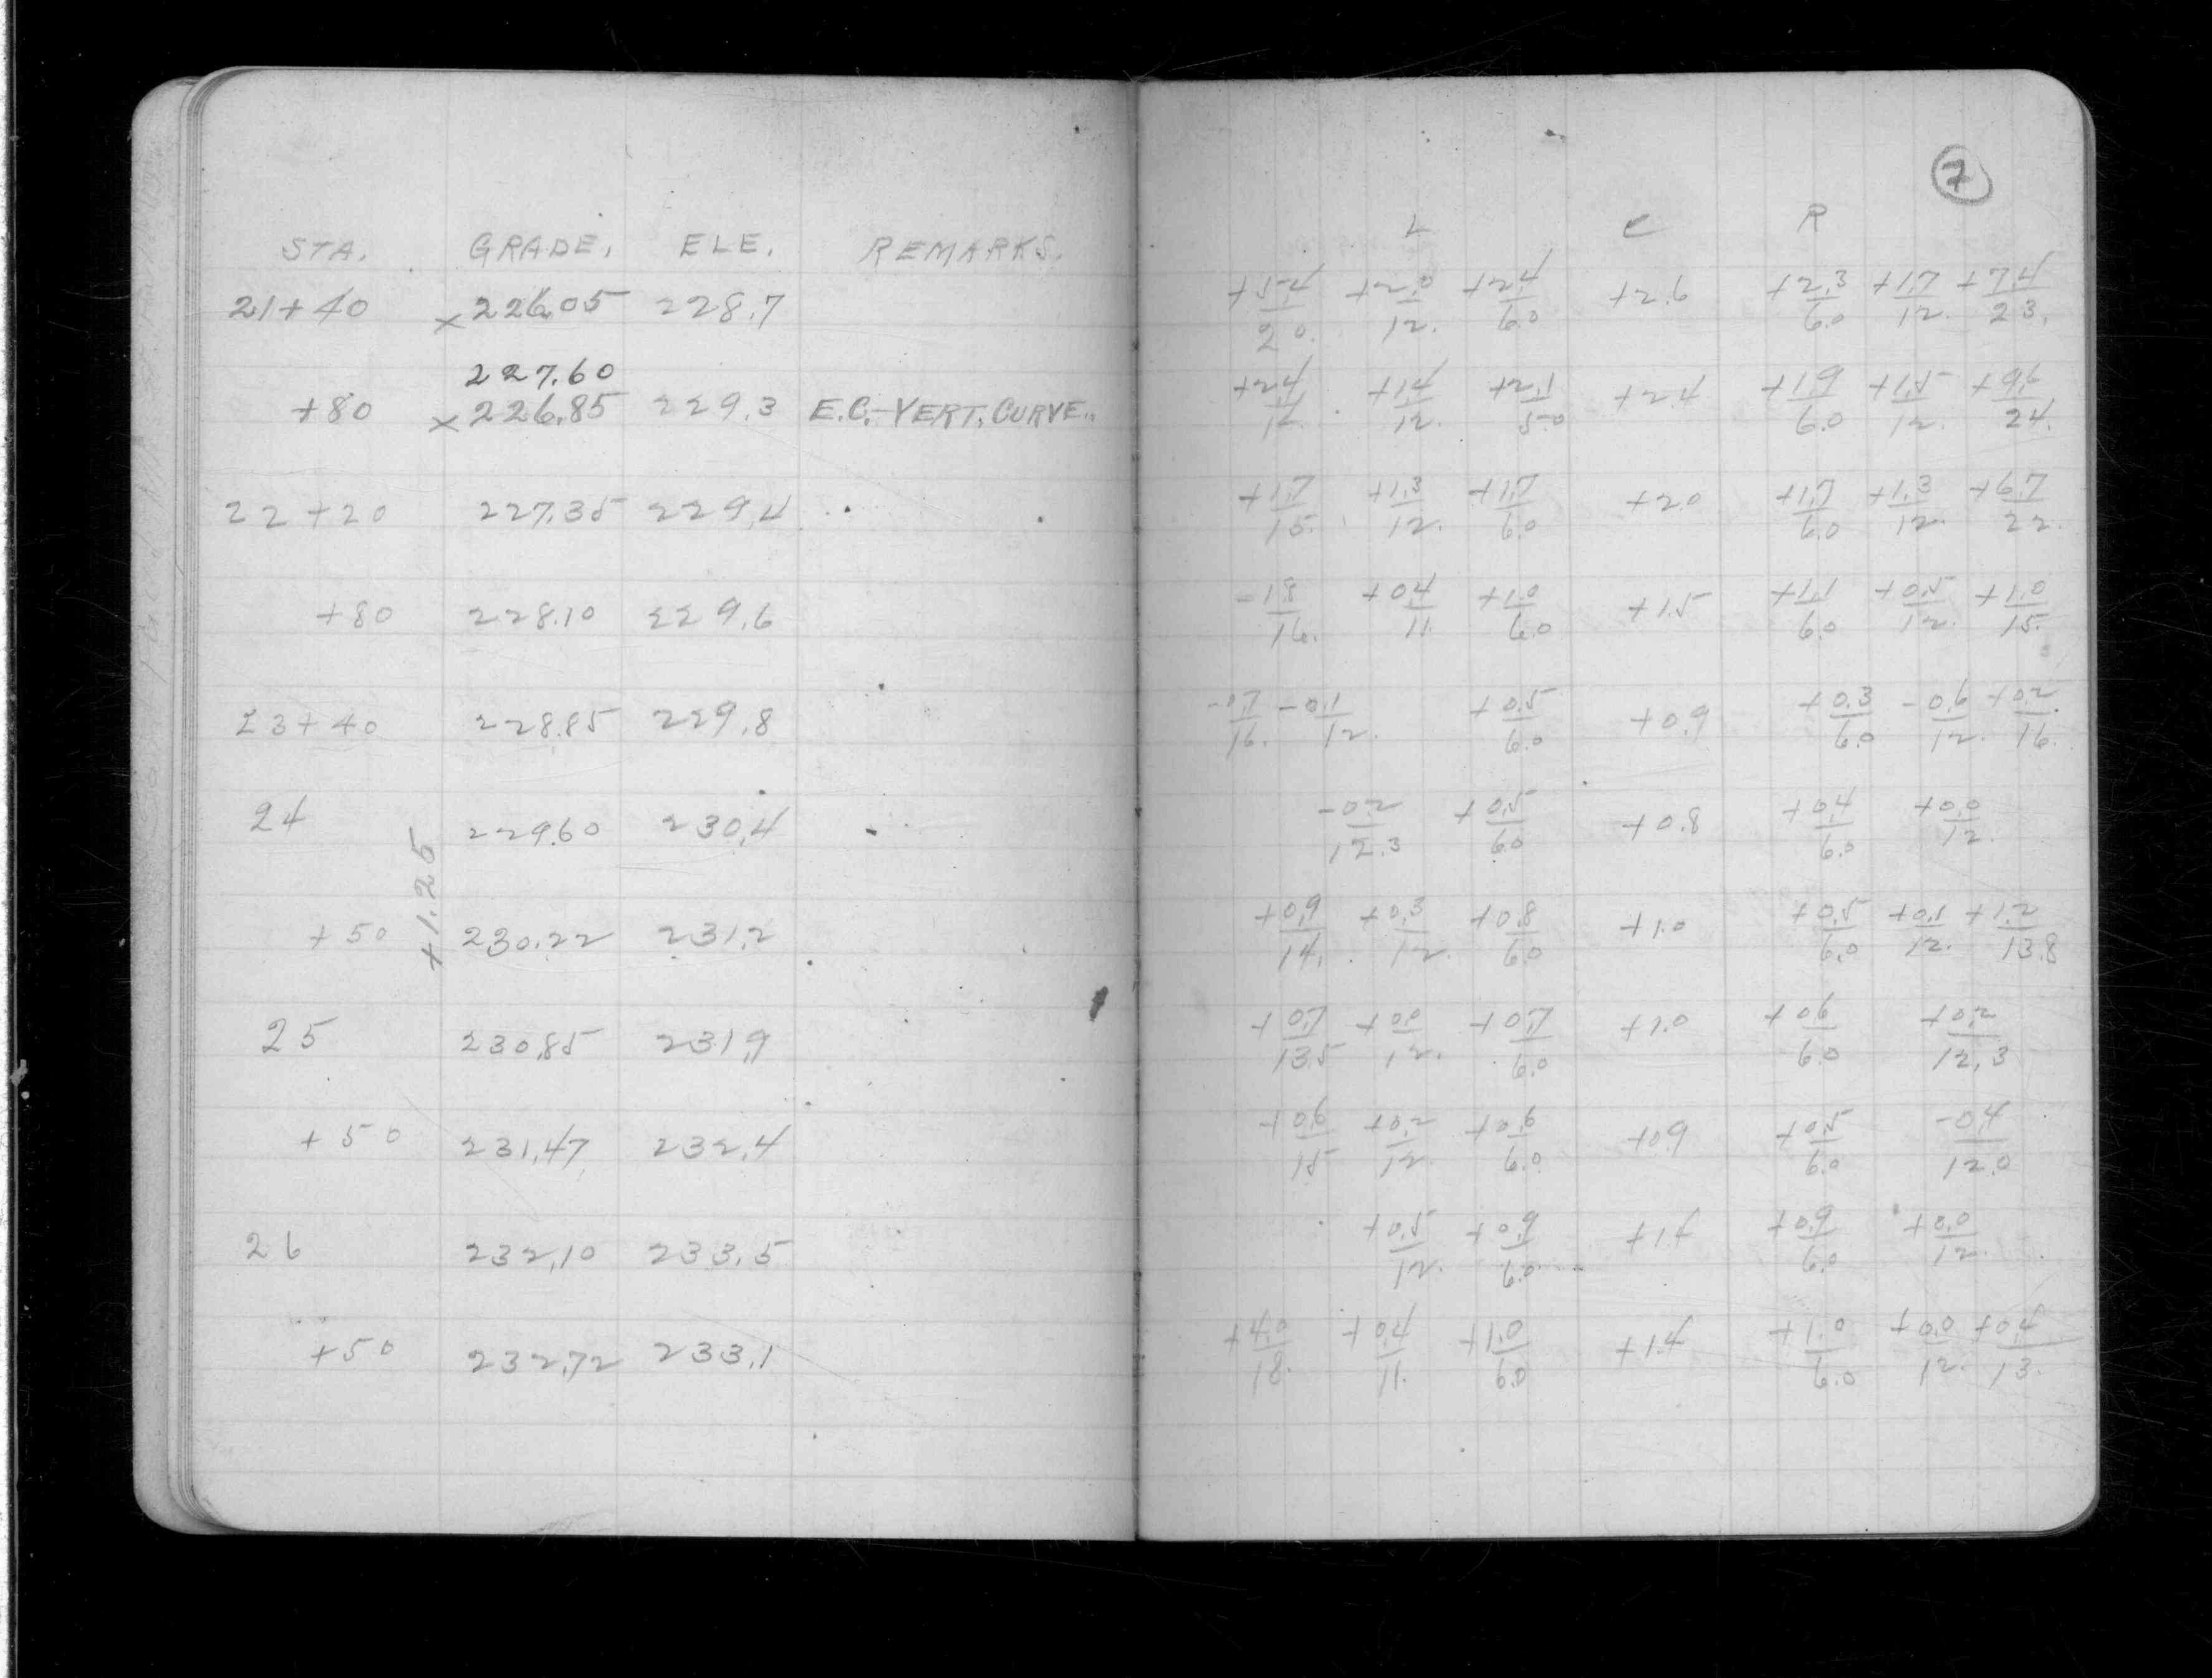 7
STA. GRADE. ELE. REMARKS. L C R
21+40 x 226.05 228.7 +5.4/20. +2.0/12. +2.4/6.0 +2.6 +2.3/6.0 +1.7/12. +7.4/23.
227.60
+80 x 226.85 229.3 E.C.-VERT. CURVE. +2.4/17. +1.4/12. +2.1/5.0 +2.4 +1.9/6.0 +1.5/12. +9.6/24.
22+20 227.35 229.4 +1.7/15. +1.3/12. +1.7/6.0 +2.0 +1.7/6.0 +1.3/12. +6.7/22.
+80 228.10 229.6 -1.8/16. +0.4/11. +1.0/6.0 +1.5 +1.1/6.0 +0.5/12. +1.0/15.
23+40 228.85 229.8 -0.7/16. -0.1/12. +0.5/6.0 +0.9 +0.3/6.0 -0.6/12. +0.2/16.
24 229.60 230.4 -0.2/12.3 +0.5/6.0 +0.8 +0.4/6.0 +0.0/12.
+1.25
+50 230.22 231.2 +0.9/14. +0.3/12. +0.8/6.0 +1.0 +0.5/6.0 +0.1/12. +1.2/13.8
25 230.85 231.9 +0.7/13.5 +0.0/12. +0.7/6.0 +1.0 +0.6/6.0 +0.2/12.3
+50 231.47 232.4 +0.6/15 +0.2/12. +0.6/6.0 +0.9 +0.5/6.0 -0.4/12.0
26 232.10 233.5 +0.5/12. +0.9/6.0 +1.4 +0.9/6.0 +0.0/12.
+50 232.72 233.1 +4.0/18. +0.4/11. +1.0/6.0 +1.4 +1.0/6.0 +0.0/12. +0.4/13.